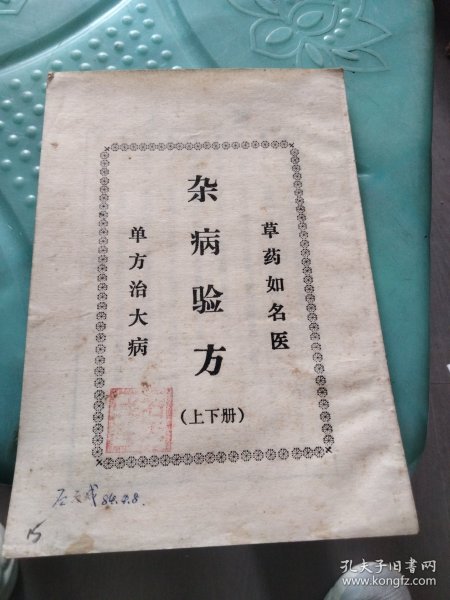 草药如名医
杂病验方
(上下册)
单方治大病
84.9.8.
15
孔夫子旧书网
www.kongfz.com